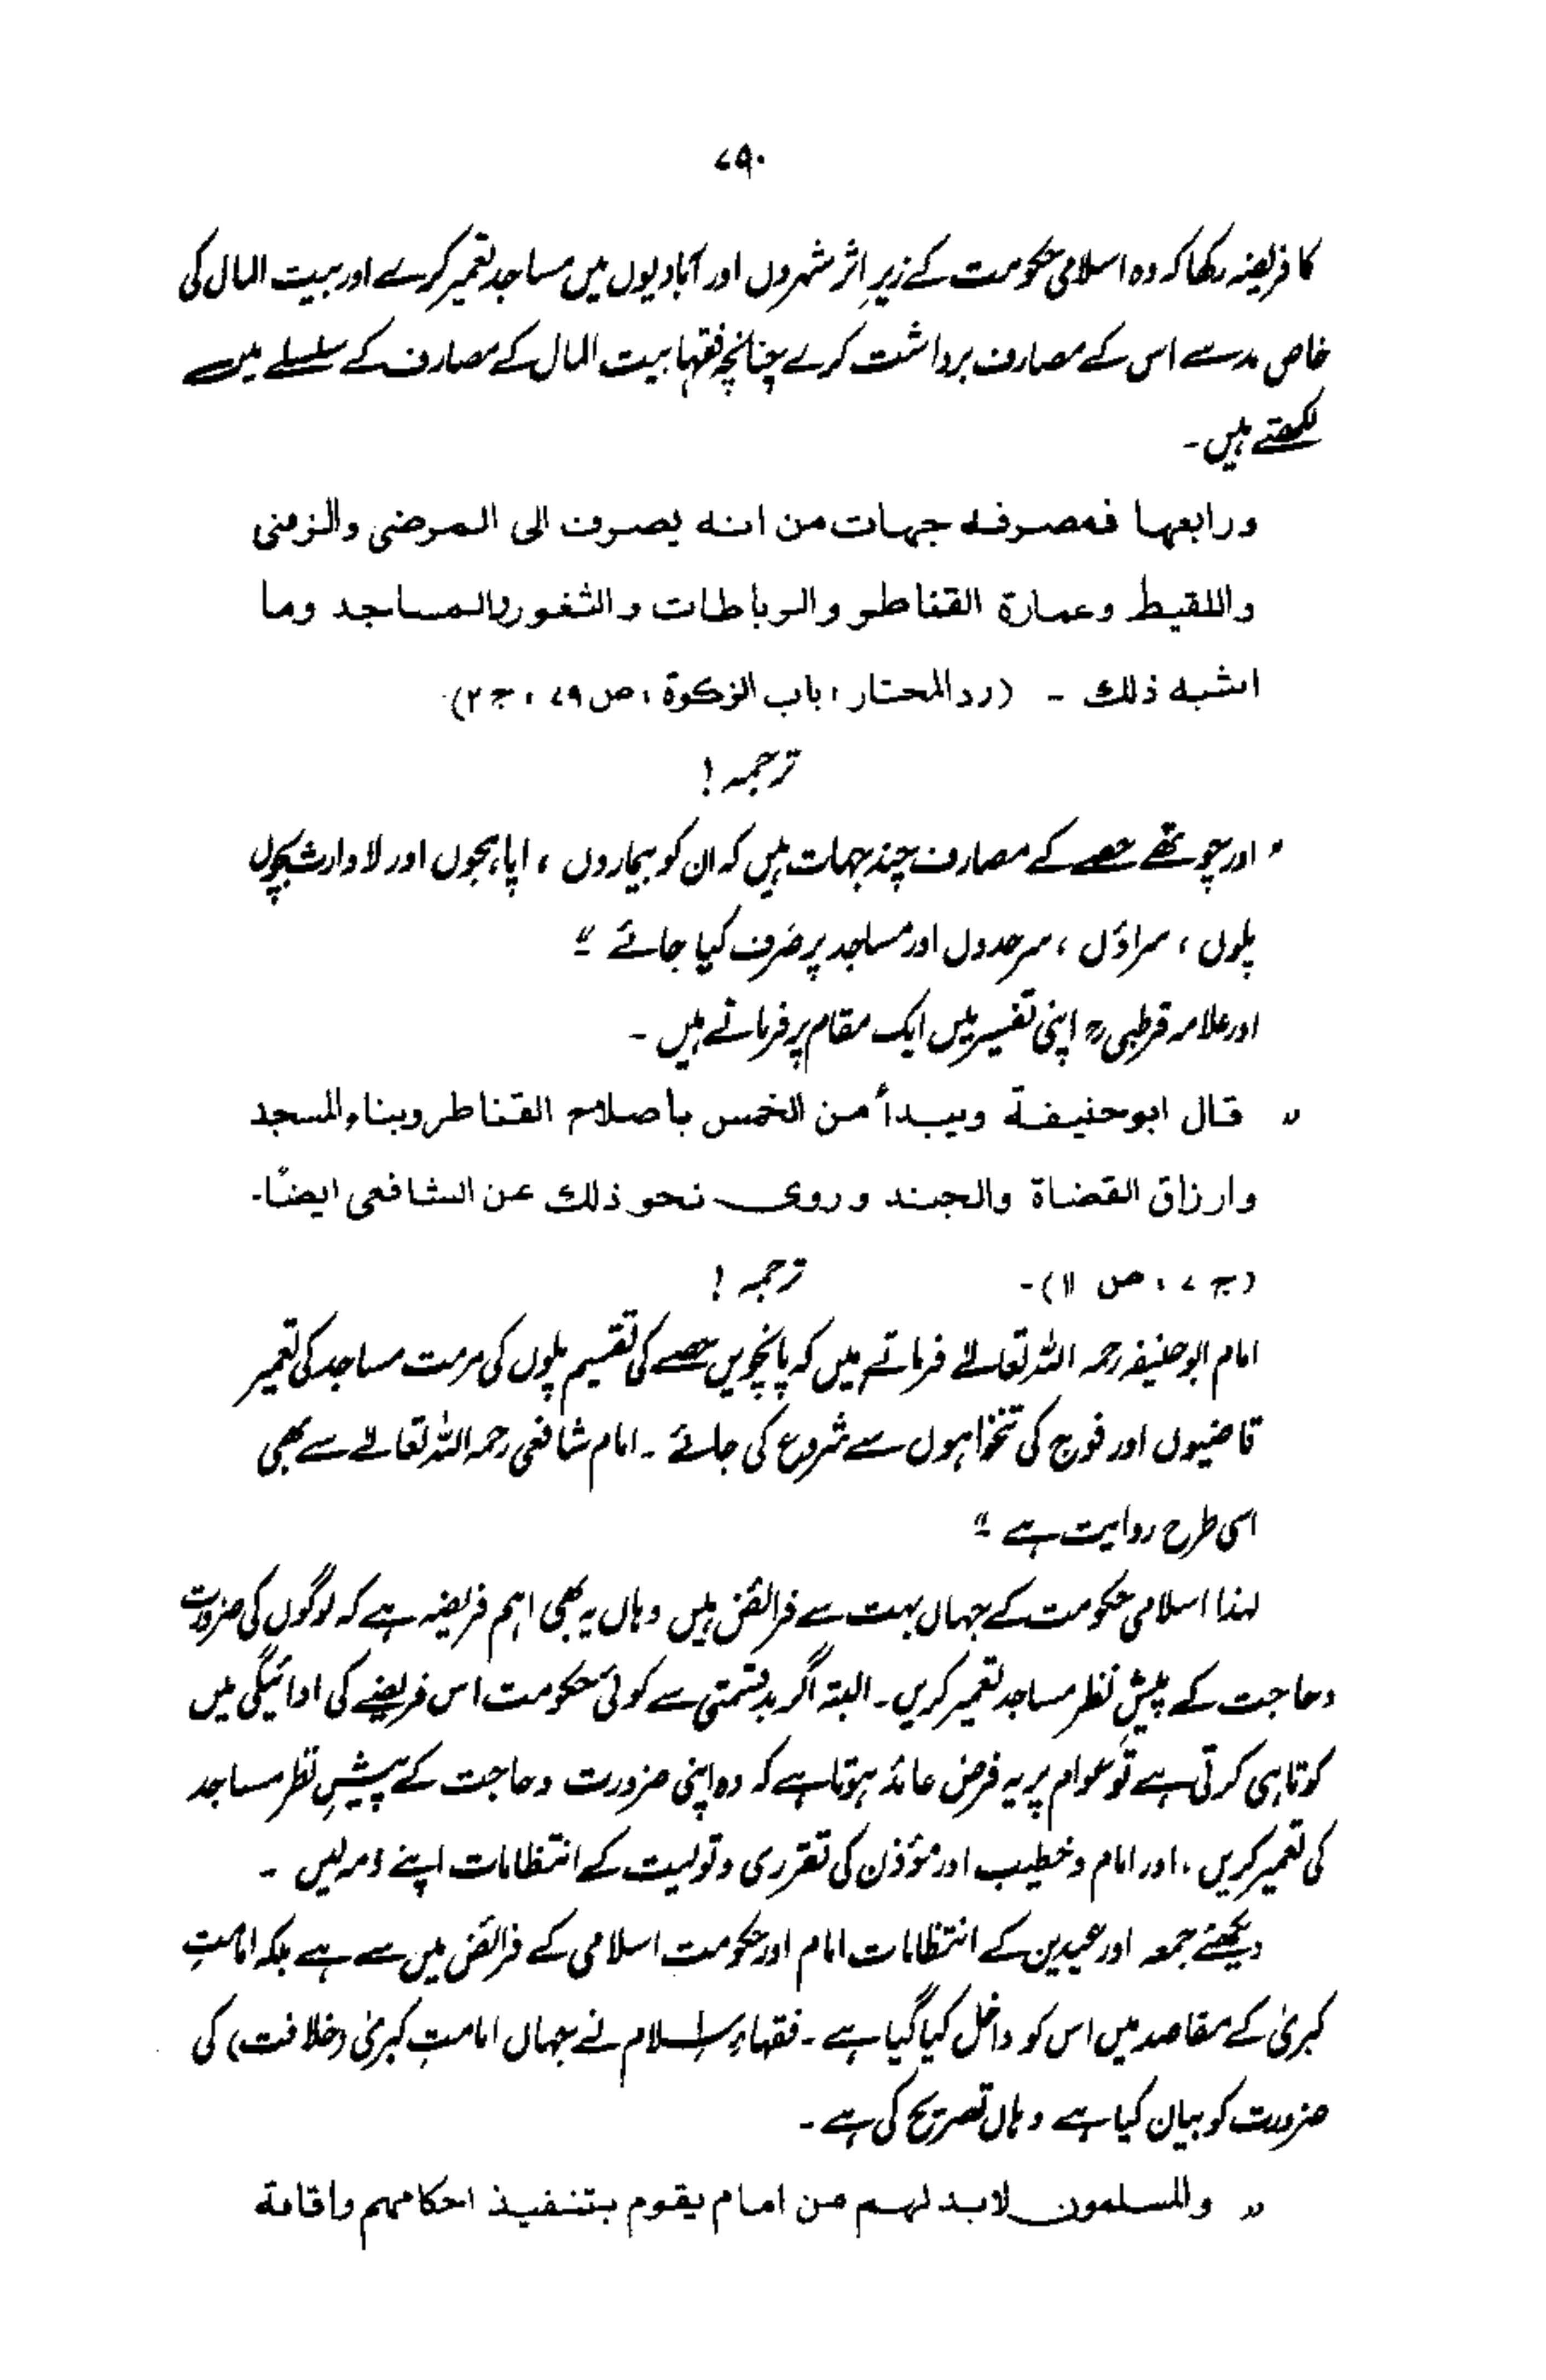 ۷۹۰
کا فریضہ رکھا کہ وہ اسلامی حکومت کے زیرِ اثر شہروں اور آبادیوں میں مساجد تعمیر کرے اور بیت المال کی
خاص مد سے اس کے مصارف برداشت کرے چنانچہ فقہا بیت المال کے مصارف کے سلسلے میں
لکھتے ہیں ۔
ورابعها فمصرفه جهات من انه يصرف الى المرضى والزمنى
واللقيط وعمارة القناطر والرباطات والثغور والمساجد وما
اشبه ذلك ۔ (رد المحتار ، باب الزكوة ، ص ۷۹ ، ج ۲)
ترجمہ !
" اور چوتھے حصے کے مصارف چند جہات ہیں کہ ان کو بیماروں ، اپاہجوں اور لاوارث بچوں
پلوں ، سراؤں ، سرحدوں اور مساجد پر صَرف کیا جائے "
اور علامہ قرطبی رح اپنی تفسیر میں ایک مقام پر فرماتے ہیں ۔
" قال ابوحنيفة ويبدأ من الخمس باصلاح القناطر وبناء المسجد
وارزاق القضاة والجند وروى نحو ذلك عن الشافعى ايضًا۔
(ج ۷ ، ص ۱۱)۔ ترجمہ !
امام ابوحنیفہ رحمہ اللہ تعالے فرماتے ہیں کہ پانچویں حصے کی تقسیم پلوں کی مرمت مساجد کی تعمیر
قاضیوں اور فوج کی تنخواہوں سے شروع کی جائے ۔ امام شافعی رحمہ اللہ تعالے سے بھی
اسی طرح روایت ہے "
لہذا اسلامی حکومت کے جہاں بہت سے فرائض ہیں وہاں یہ بھی اہم فریضہ ہے کہ لوگوں کی ضرورت
و حاجت کے پیشِ نظر مساجد تعمیر کریں ۔ البتہ اگر بدقسمتی سے کوئی حکومت اس فریضے کی ادائیگی میں
کوتاہی کرتی ہے تو عوام پر یہ فرض عائد ہوتا ہے کہ وہ اپنی ضرورت و حاجت کے پیشِ نظر مساجد
کی تعمیر کریں ، اور امام و خطیب اور مؤذن کی تقرری و تولیت کے انتظامات اپنے ذمہ لیں ۔
دیکھئے جمعہ اور عیدین کے انتظامات امام اور حکومت اسلامی کے فرائض میں سے ہے بلکہ امامتِ
کبریٰ کے مقاصد میں اس کو داخل کیا گیا ہے ۔ فقہاءِ اسلام نے جہاں امامتِ کبریٰ (خلافت) کی
ضرورت کو بیان کیا ہے وہاں تصریح کی ہے ۔
" والمسلمون لابد لهم من امام يقوم بتنفيذ احكامهم واقامة